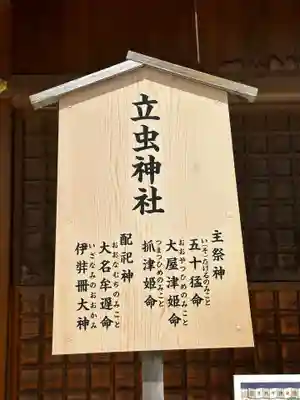 立虫神社
主祭神
五十猛命
いそたけるのみこと
大屋津姫命
おおやつひめのみこと
抓津姫命
つまつひめのみこと
配祀神
大名牟遅命
おおなむちのみこと
伊弉冊大神
いざなみのおおかみ